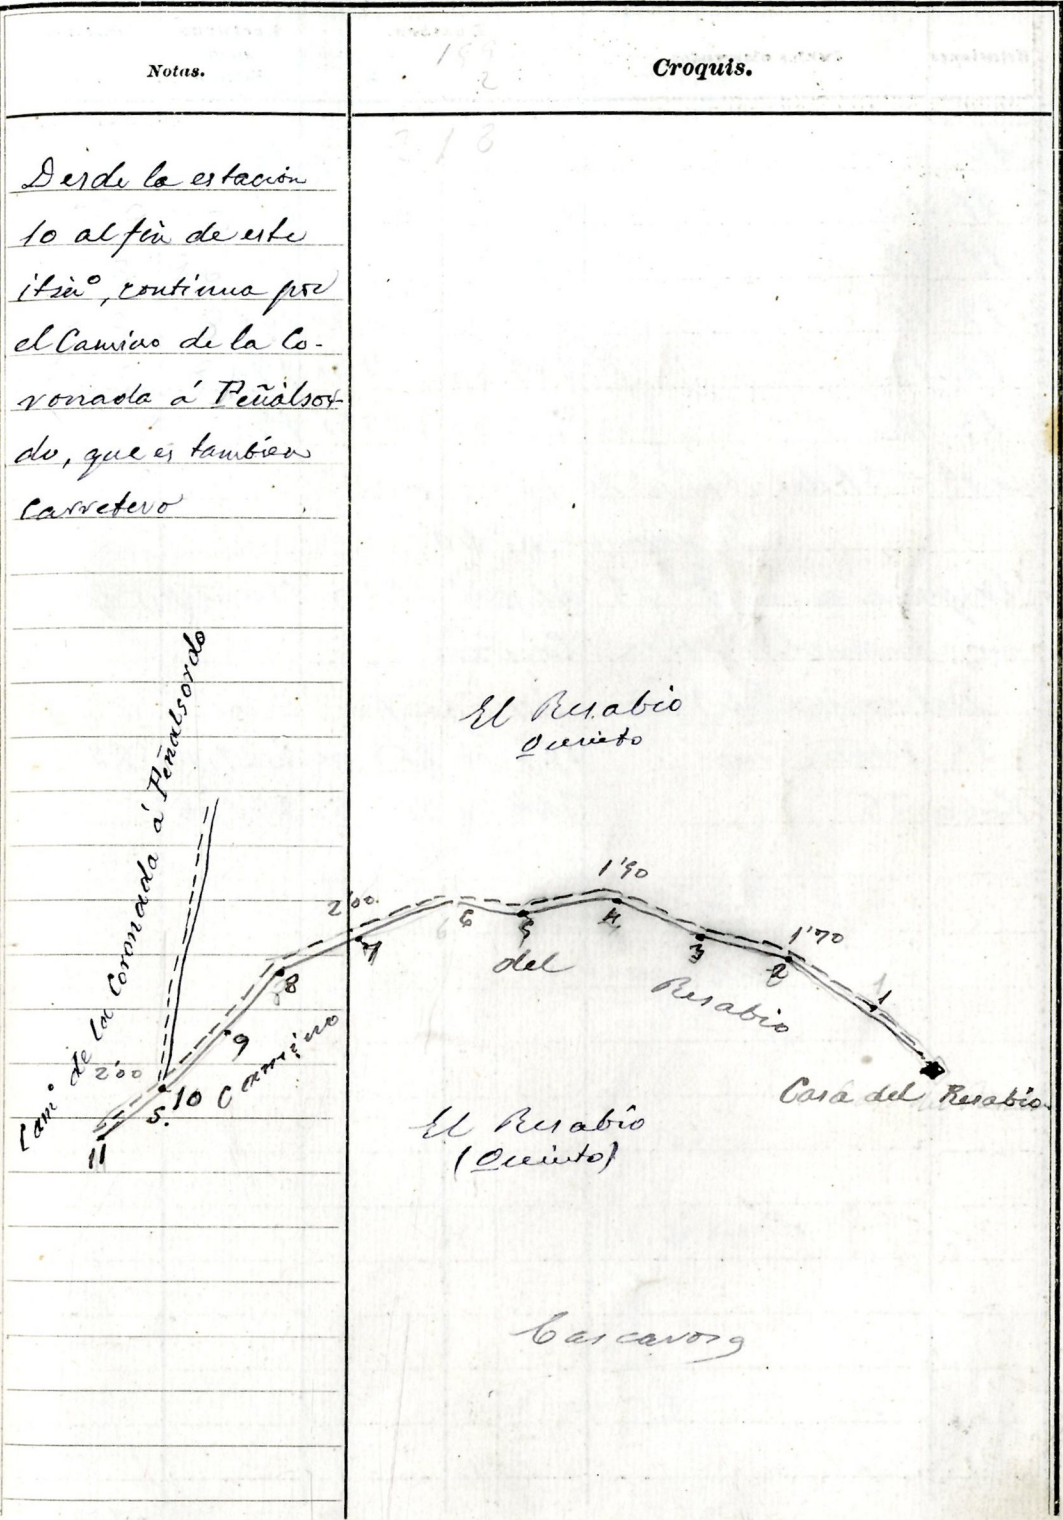 Notas.
Croquis.
Desde la estación
10 al fin de este
itinº, continua por
el Camino de la Co-
ronada á Peñalsor-
do, que es tambien
carretero
Camº de la Coronada á Peñalsordo
El Resabio
Quinto
1'90
2'00
1'70
6
5
4
7
3
2
8
del
Resabio
1
9
Camino
2'00
10
S.
11
Casa del Resabio
El Resabio
(Quinto)